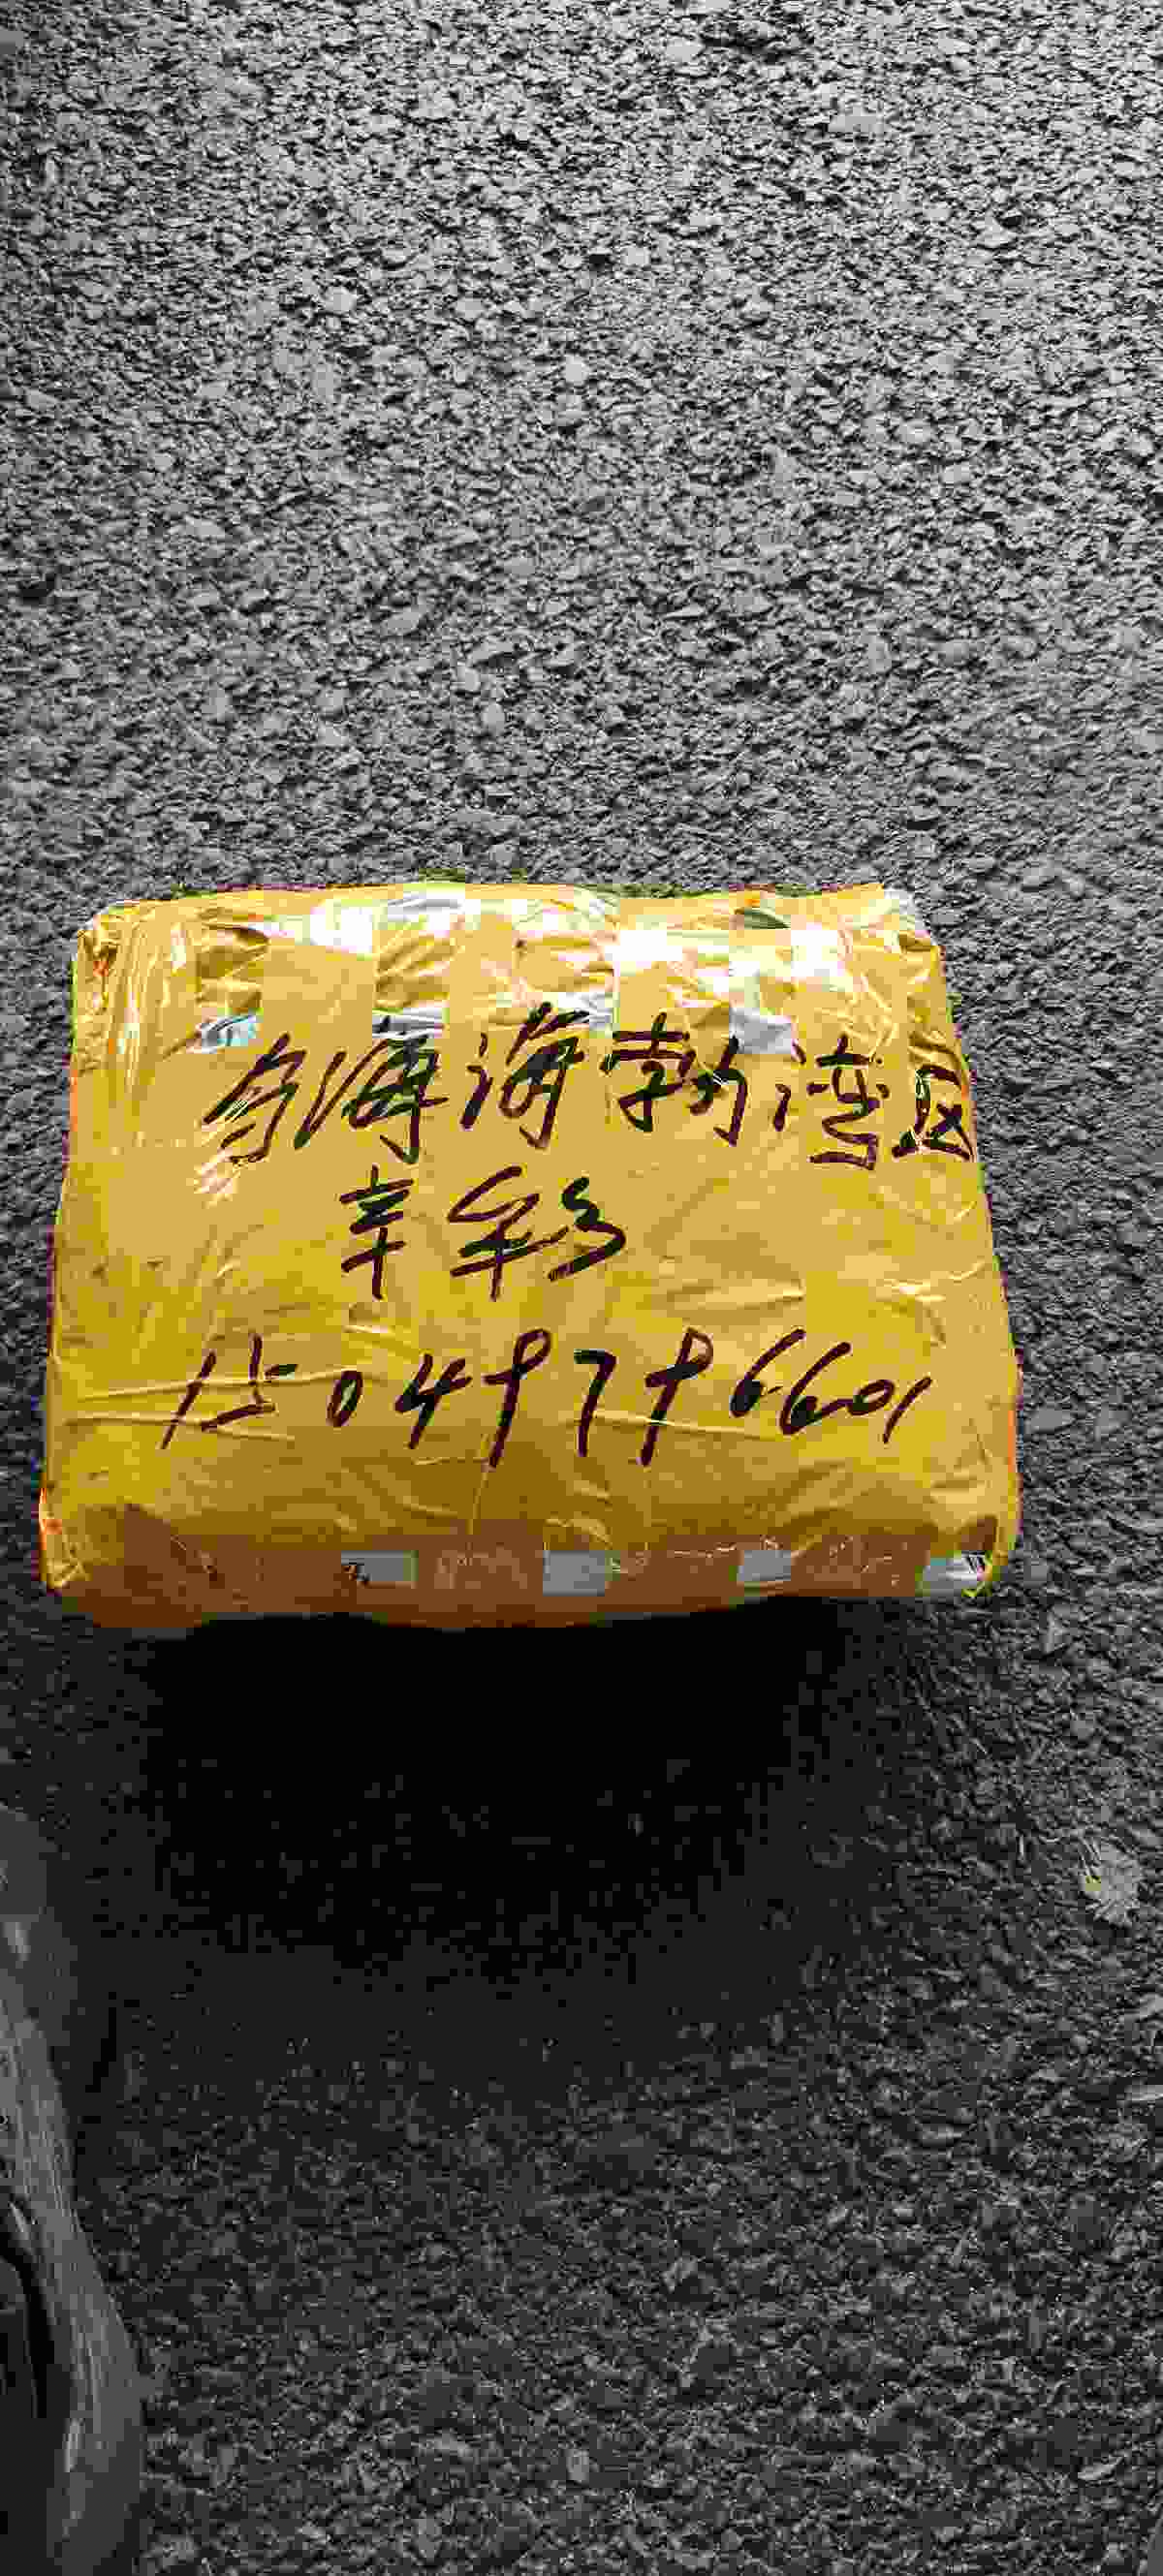 乌海海勃湾区
辛彩
15049796601